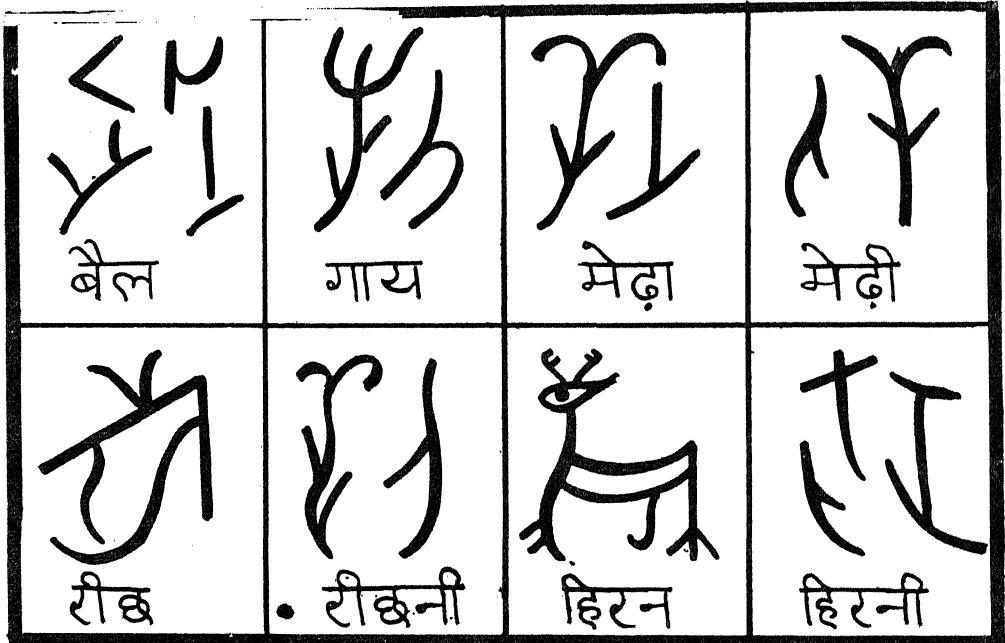 बैल
गाय
मेढ़ा
मेढ़ी
रीछ
रीछनी
हिरन
हिरनी